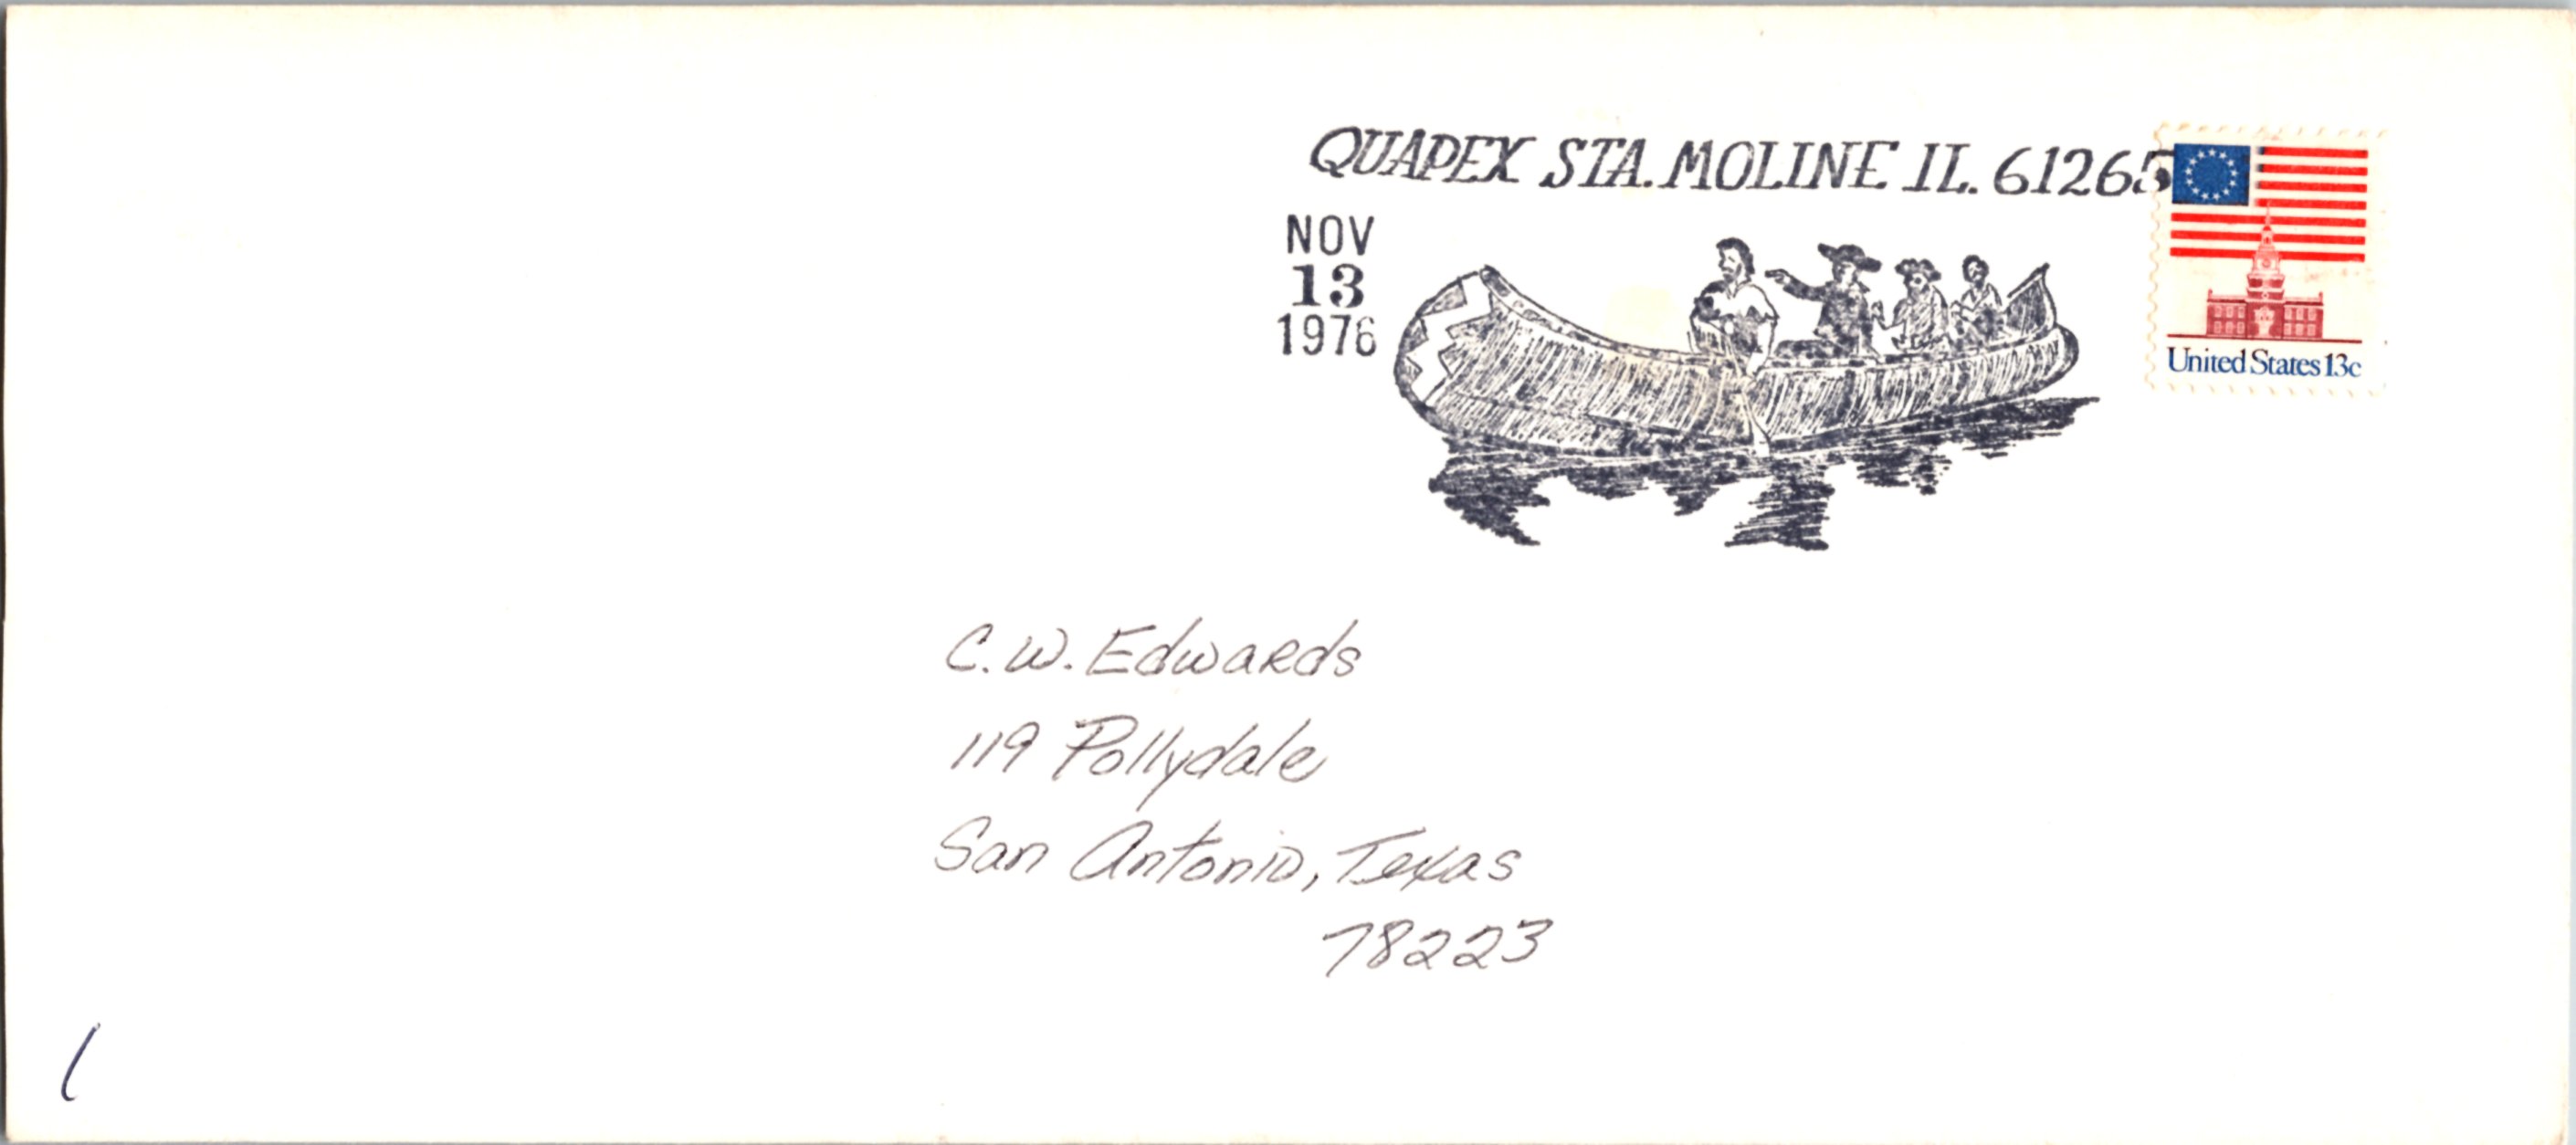 QUAPEX STA. MOLINE IL. 61265
NOV
13
1976
United States 13c
C. W. Edwards
119 Pollydale
San Antonio, Texas
78223